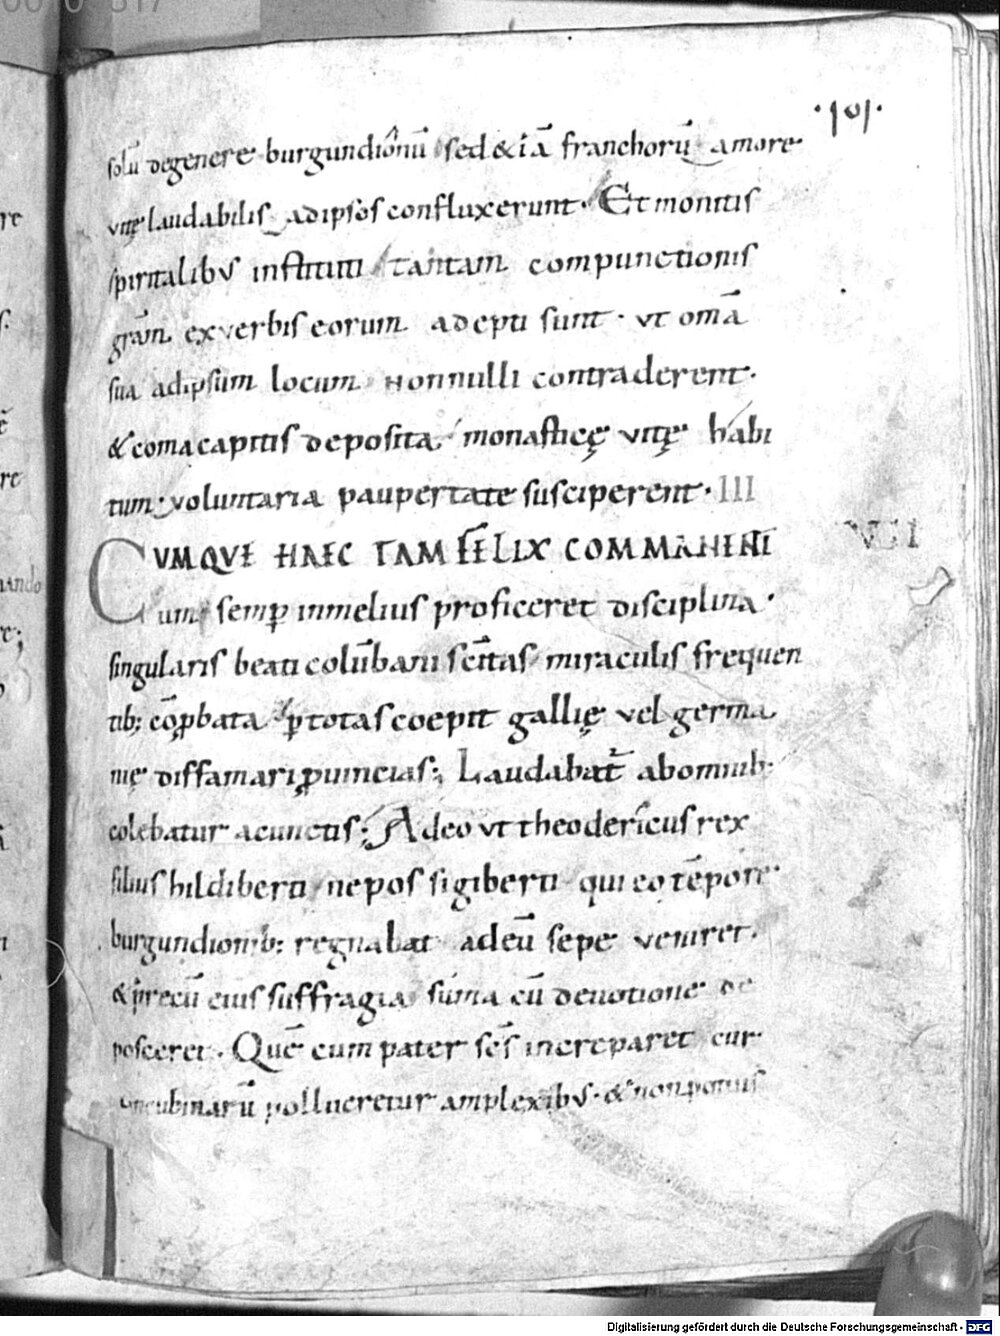 ·101·
solū degenere burgundionū sed & iā franchorū amore
vitę laudabilis adipsos confluxerunt· Et monitis
spiritalibus instituti tantam compunctionis
grām exverbis eorum adepti sunt· ut omā
sua adipsum locum nonnulli contraderent·
& coma capitis deposita monasticę vitę habi
tum· voluntaria paupertate susciperent· III
CUMQUE HAEC TAM FELIX COMMANENTI
VII
um semp inmelius proficeret disciplina·
singularis beati colūbani scītas miraculis frequen
tib; cōpbata p totas coepit gallię vel germa
nię diffamari puincias; Laudabat̄ abomnib;
colebatur acunctis; Adeo ut theodericus rex
filius hildiberti nepos sigiberti qui eo tēpore
burgundionib; regnabat adeū sepe veniret·
& precū eius suffragia sūma cū deuotione de
posceret· Quē cum pater scs̄ increparet cur
concubinarū pollueretur amplexibus· & non potius
Digitalisierung gefördert durch die Deutsche Forschungsgemeinschaft - DFG